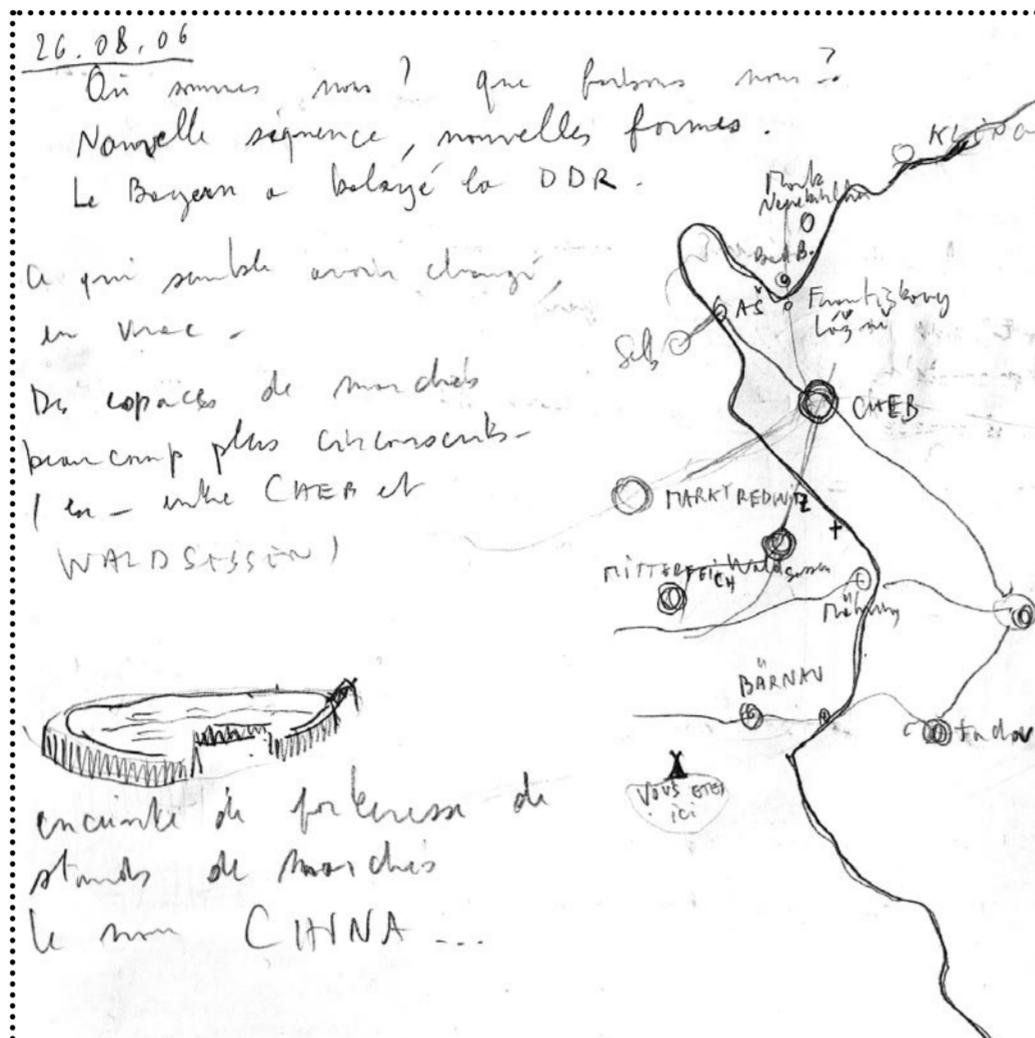 26.08.06
Où sommes nous ? que faisons nous ?
Nouvelle séquence, nouvelles formes.
Le Bayern a balayé la DDR.
Ce qui semble avoir changé,
en vrac -
Des espaces de marchés
beaucoup plus circonscrits -
entre CHEB et
WALDSASSEN)
enceinte de forteresse de
stands de marchés
le nom CHINA ...
Bad B.
AŠ
Františkovy
Lázně
Selb
CHEB
MARKTREDWITZ
MITTERTEICH
Waldsassen
Mähring
BÄRNAU
Tachov
VOUS ETES
ici